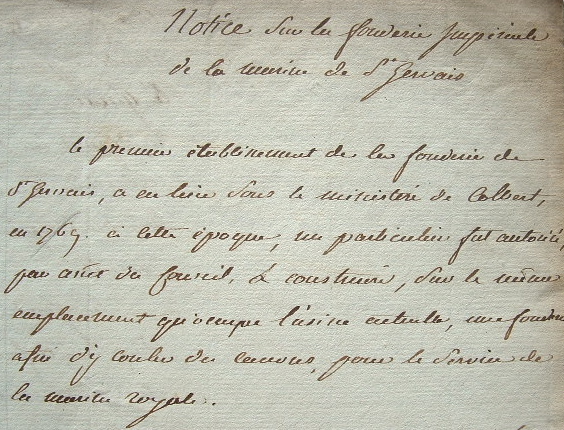 Notice sur la fonderie Impériale
de la marine de St Gervais
le premier établissement de la fonderie de
St Gervais, a eu lieu sous le ministère de Colbert,
en 1769. à cette époque, un particulier fut autorisé,
par arrêt du Conseil, à construire, sur le même
emplacement qu'occupe l'usine actuelle, une fonderie
afin d'y couler des canons, pour le service de
la marine royale.